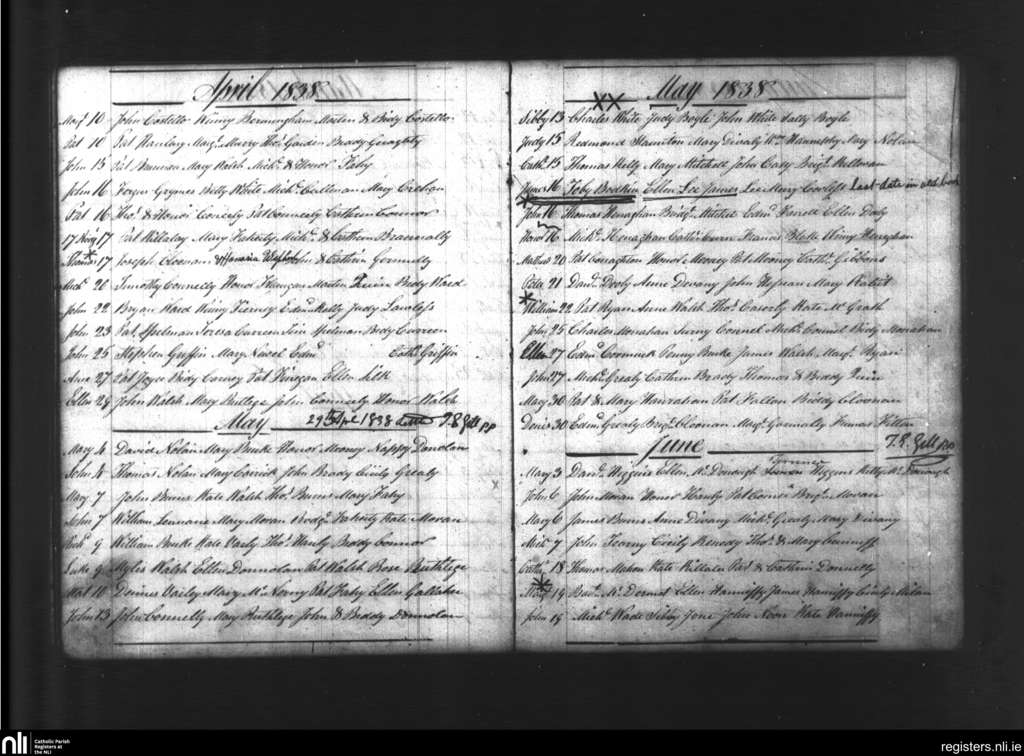 April 1838
10 John Costello Winny Bermingham Martin & Bridy Costello
Pat 10 Pat Hanlay Marg. Murry Thos. Garden Brady Geraghty
John 15 Pat Brannan Mary Walsh Mich. & Honor Fahy
John 16 Roger Grymes Betty White Mich. Cullenan Mary Crehan
Pat 16 Thos. & Honor Coneely Pat Conneely Cathern Connor
17 Pat Killalay Mary Faherty Mich. & Cathern
Thomas 17 Joseph Cloonan & John & Cathrin Gormally
Mich. 20 Timothy Connelly Honor Flanigan Martin Quin Bridy Ward
John 22 Bryan Ward Winny Tierney Edm. Kelly Judy Lawless
John 23 Pat Spelman Teresa Curreen Spelman Bridy Curreen
John 25 Stephen Griffin Mary Newel Edm. Cath. Griffin
Anne 27 Pat Joyce Bidy Carney Pat Finegan Ellen Lilk
Ellen 29 John Walsh Mary Rutlege John Connerly Honor Walsh
29th Apl 1838 T.B. Gill pp
May
Mary 4 David Nolan Mary Burke Honor Mooney Nappy Donolan
John 4 Thomas Nolan Mary John Brady Cicily Grealy
Mary 7 John Burns Kate Walsh Thos. Burns Mary Fahy
John 7 William Lennane Mary Moran Bridg. Faherty Kate Moran
9 William Burke Kate Varly Thos. Hanly Biddy Connor
Luke 9 Myles Walsh Ellen Donnolan Pat Walsh Rose Ruthlege
10 Dennis Vaily Mary Mc Pat Fahy Ellen Gallaher
John 13 John Connelly Mary Ruthlege John & Biddy Donnolan
May 1838
XX
Sibby 13 Charles White Judy Boyle John White Sally Boyle
Judy 15 Redmond Staunton Mary Divaly Wm. Hanniffy Mary Nolan
Cath. 15 Thomas Kelly Mary Mitchell John Casy Bridg. Hallwan
James 16 Toby Bodkin Ellen Lee James Lee Mary Last date in old book
John 16 Thomas Henaghan Bridg. Mitchel Edm. Farrell Ellen Dooly
Honor 16 Mich. Henaghan Cath. Francis Blake Winy Henaghan
20 Pat Conaghton Honor Mooney Pat Mooney Cath. Gibbons
Peter 21 Dan. Dooly Anne Devany John Hessean Mary Rabit
William 22 Pat Ryan Anne Walsh Thos. Caverly Kate Mc Grath
John 25 Charles Monahan Connel Mich. Connel Bidy Monahan
Ellen 27 Edm. Cormick Penny Burke James Walsh Marg. Ryan
John 27 Mich. Grealy Cathern Brady Thomas & Biddy Quin
Mary 30 Pat & Mary Hanrahan Pat Fallon Biddy Cloonan
Denis 30 Edm. Grealy Bridg. Cloonan Marg. Gormally Killen
T.B. Gill pp
June
Mary 3 Dan. Wiggins Ellen Mc Donough Wiggins Kitty Mc Donough
John 6 John Moran Honor Hanly Pat Connor Bridg. Moran
Mary 6 James Burns Anne Divany Mich. Grealy Mary Divany
Mich. 7 John Feerny Cicily Kenedy Thos. & Mary Cunniff
18 Thomas Mahon Kate Killala Pat & Cathrin Donnelly
19 Mc Dermot Ellen Hanniffy James Hanniffy
John 19 Mich. Wade Sibby Jone John Noon Kate Hanniffy
nli
Catholic Parish
Registers at
the NLI
registers.nli.ie